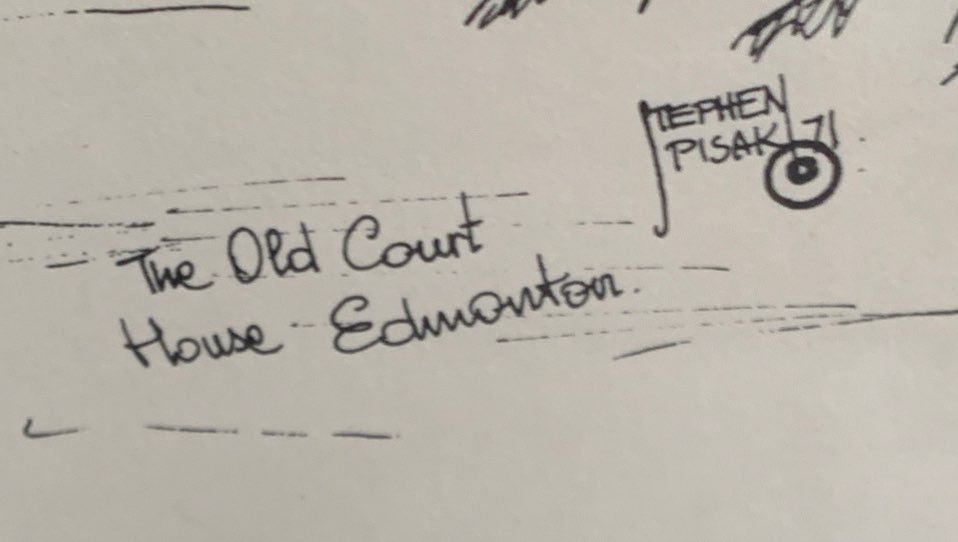 STEPHEN
PISAK 71
The Old Court
House Edmonton.